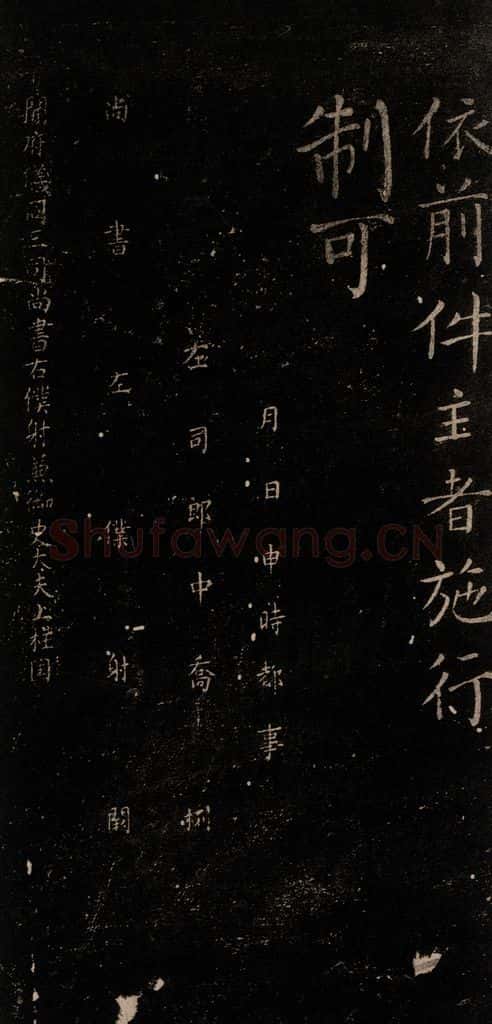 依前件主者施行
制可
月日申時都事
左司郎中喬
尚書左僕射闕
開府儀同三司尚書右僕射兼御史大夫上柱国
Shufawang.CN